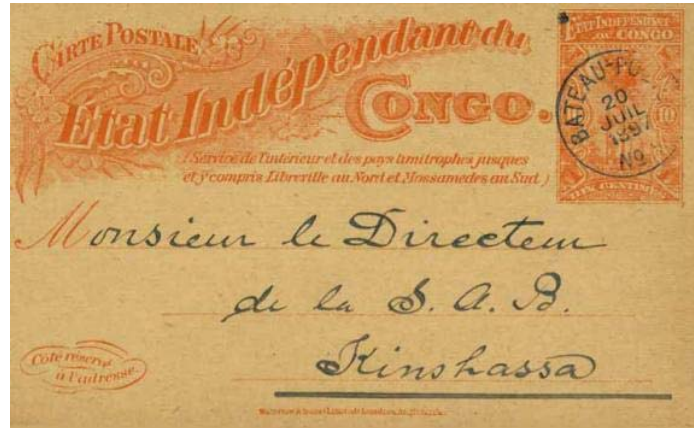 CARTE POSTALE
Etat Indépendant du
CONGO.
(Service de l'intérieur et des pays limitrophes jusques
et y compris Libreville au Nord et Mossamedes au Sud.)
ETAT INDÉPENDANT
DU CONGO
BATEAU-POSTE
20
JUIL
1897
No
10
DIX CENTIMES
Monsieur le Directeur
de la S. A. B.
Kinshassa
Côté réservé
à l'adresse.